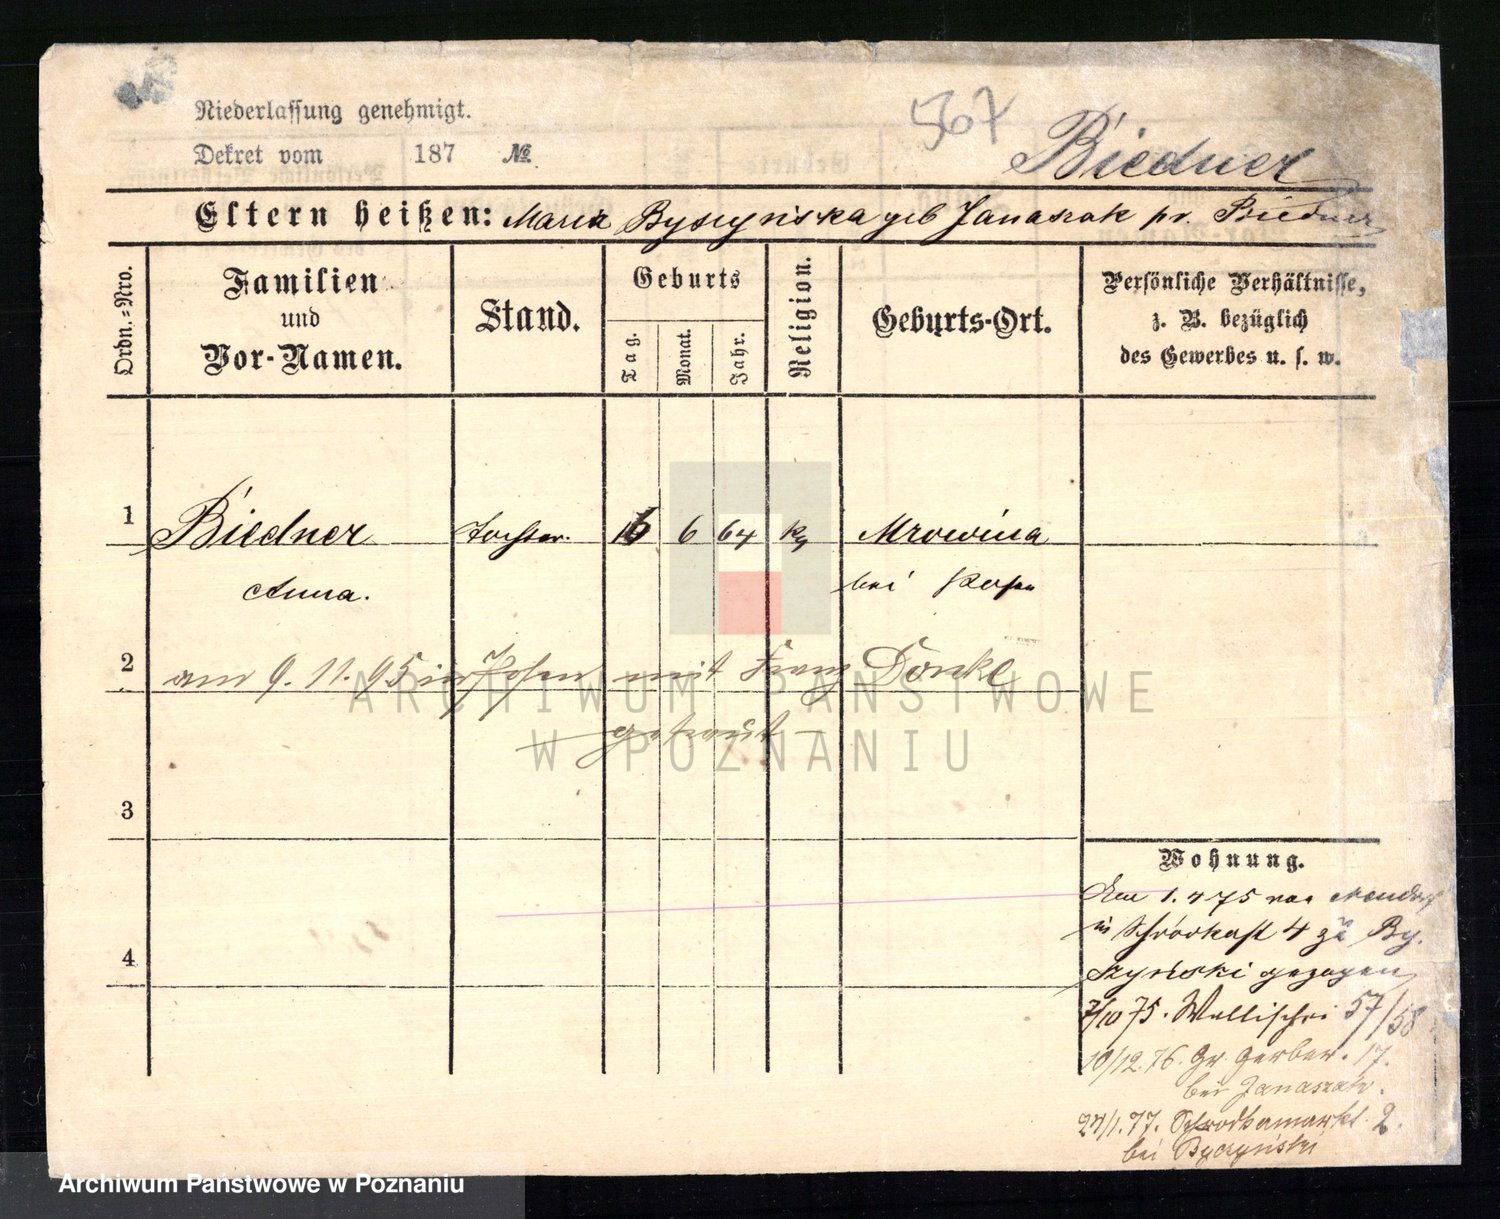 Niederlassung genehmigt.
Dekret vom 187 №
567
Biedner
Eltern heißen: Maria Byszyńska geb Janaszak pr. Biedner
Ordn.=Nro.
Familien und Vor-Namen.
Stand.
Geburts
Tag.
Monat.
Jahr.
Religion.
Geburts-Ort.
Persönliche Verhältnisse,
z. B. bezüglich
des Gewerbes u. s. w.
1 Biedner Tochter. 6 64 Mrowina
Anna. bei Posen
2
am 9.11.95 in Posen mit Franz Donke
getraut
3
4
Wohnung.
1.4 75 von
in Schrodkaft 4 zu By.
szyński gezogen
7/10 75. Wallischei 57/58
10/12.76. Gr. Gerber. 17.
bei Janaszak.
1.77. Schrodkamarkt 2.
bei Byczyński
ARCHIWUM PAŃSTWOWE
W POZNANIU
Archiwum Państwowe w Poznaniu